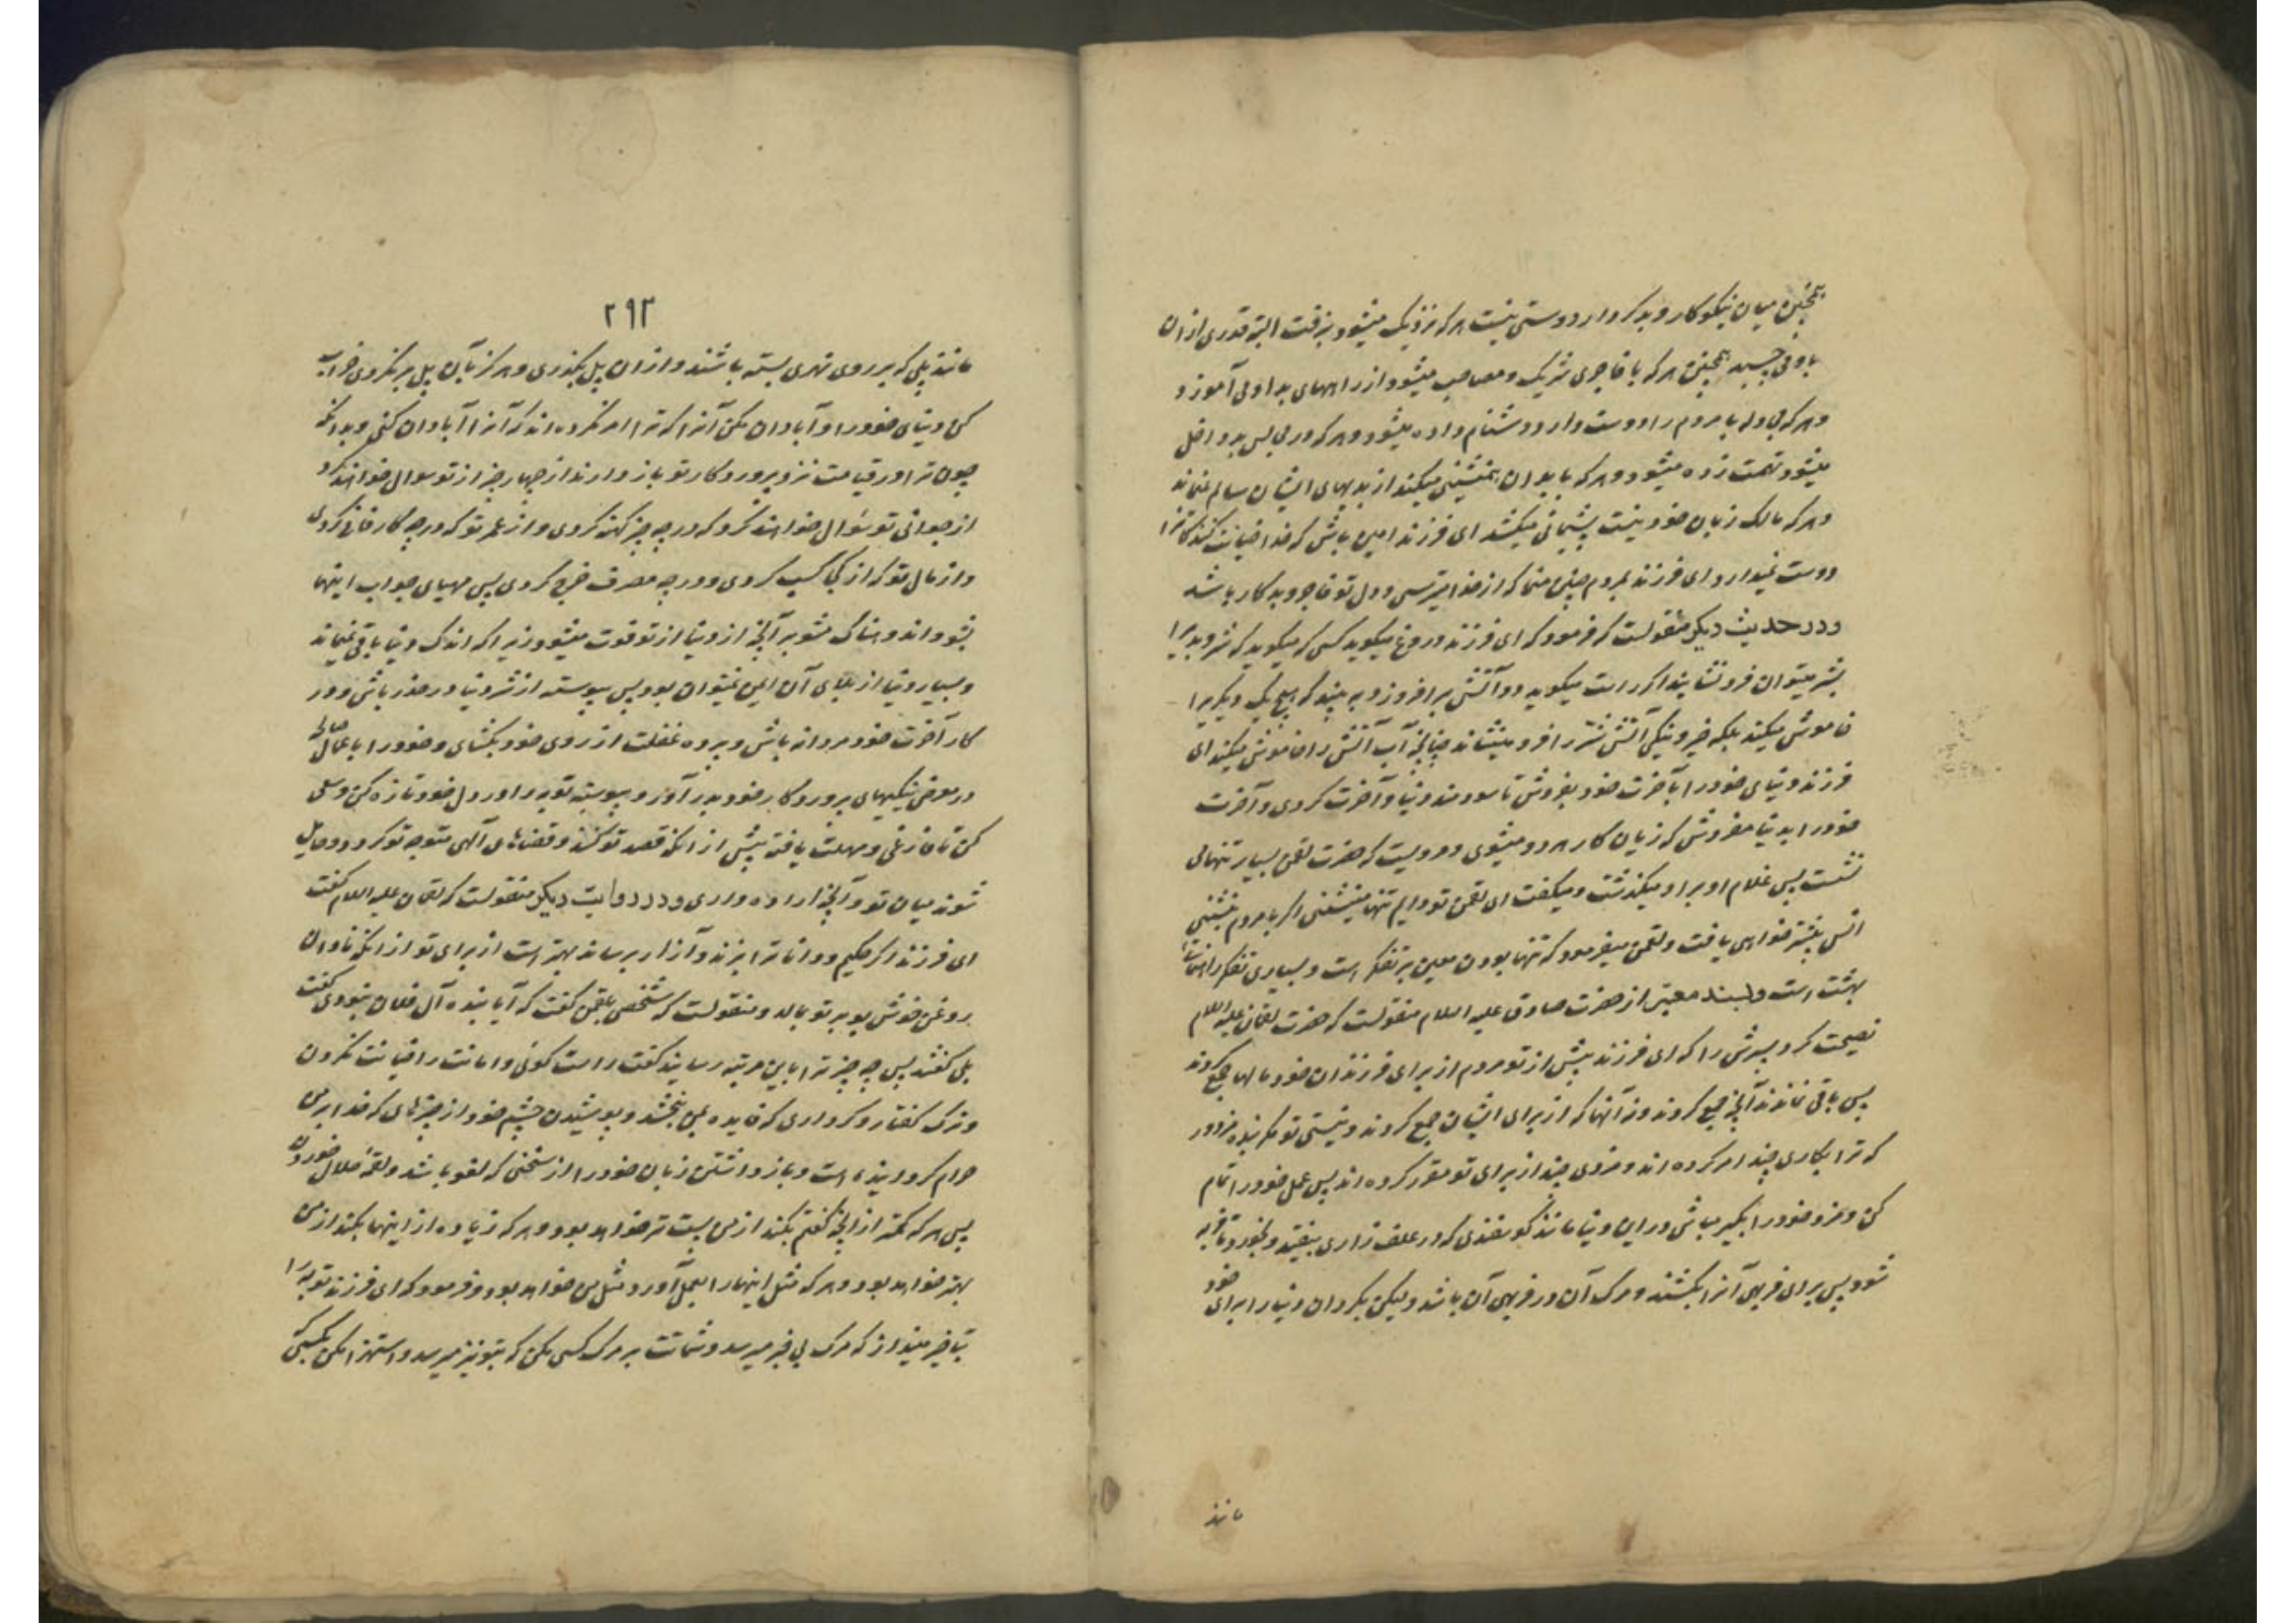 همچنین میان نیکوکار و بدکردار دوستی نیست هرکه نزدیک میشود بزفت البته قدری ازان
باو می‌چسبد همچنین هرکه با فاجری شریک و مصاحب میشود از راههای بد او می‌آموزد و
و هرکه مجادله با مردم را دوست دارد دشنام داده میشود و هرکه در مجالس بد داخل
میشود تهمت زده میشود و هرکه با بدان همنشینی میکند از بدیهای ایشان سالم نمیماند
و هرکه مالک زبان خود نیست پشیمانی میکشد ای فرزند امین باش که خدا خیانت کنندگانرا
دوست نمیدارد ای فرزند بمردم چنین منما که از خدا میترسی و دل تو فاجر و بدکار باشد
و در حدیث دیگر منقولست که فرمود که ای فرزند دروغ میگوید کسی که میگوید که شر و بدیرا
بشر میتوان فرونشانید اگر راست میگوید دو آتش برافروزد و به بیند که هیچ یک دیگریرا
خاموش میکند بلکه خیر و نیکی آتش شر را فرو مینشاند چنانچه آب آتش را خاموش میکند ای
فرزند دنیای خود را بآخرت خود بفروش تا سودمند دنیا و آخرت گردی و آخرت
خود را بدنیا مفروش که زیان کار هر دو میشوی و مرویست که حضرت لقمن بسیار تنها می
نشست پس غلام او بر او میگذشت و میگفت ای لقمن تو دایم تنها مینشینی اگر با مردم بنشینی
انس بیشتر خواهی یافت و لقمن میفرمود که تنها بودن معین بر تفکر است و بسیاری تفکر راهنمای
بهشت است و بسند معتبر از حضرت صادق علیه السلام منقولست که حضرت لقمان علیه السلام
نصیحت کرد پسرش را که ای فرزند پیش از تو مردم از برای فرزندان خود مالها جمع کردند
پس باقی نماندند آنچه جمع کردند و نه آنها که از برای ایشان جمع کردند و نیستی تو مگر بنده مزدور
که ترا بکاری چند امر کرده‌اند و مزدی چند از برای تو مقرر کرده‌اند پس عمل خود را تمام
کن و مزد خود را بگیر مباش در این دنیا مانند گوسفندی که در علف زاری بیفتد و بخورد تا فربه
شود پس برای فربهی آنرا بکشند و مرگ آن در فربهی آن باشد و لیکن بگردان دنیا را برای خود
مانند
۲۹۳
مانند پلی که بر روی نهری بسته باشند و ازان پل بگذری و هرگز بآن پل برنگردی خراب
کن دنیای خود را و آبادان مکن آنرا که ترا امر نکرده‌اند که آنرا آبادان کنی و بدانکه
چون ترا در قیامت نزد پروردگار تو باز دارند از چهار چیز از تو سوال خواهند کرد
از جوانی تو سئوال خواهند کرد که در چه چیز کهنه کردی و از عمر تو که در چه کار فانی کردی
و از مال تو که از کجا کسب کردی و در چه مصرف خرج کردی پس مهیای جواب اینها
بشو و اندوهناک مشو بر آنچه از دنیا از تو فوت میشود زیرا که اندک دنیا باقی نمیماند
و بسیار دنیا از بلای آن ایمن نمیتوان بود پس پیوسته از شر دنیا در حذر باش و در
کار آخرت خود مردانه باش و پرده غفلت از روی خود بگشای و خود را باعمال صالحه
در معرض نیکیهای پروردگار خود بدر آور و پیوسته توبه را در دل خود تازه کن و سعی
کن تا فارغی و مهلت یافته پیش از انکه قصد تو کنند و قضاهای آلهی متوجه تو گردد و حایل
شوند میان تو و آنچه اراده داری و در روایت دیگر منقولست که لقمان علیه السلام گفت
ای فرزند اگر حکیم و دانا ترا بزند و آزار برساند بهتر است از برای تو از انکه نادان
روغن خوش بو بر تو بمالد و منقولست که شخصی بلقمن گفت که آیا بنده آل فلان نبودی گفت
بلی گفتند پس چه چیز ترا باین مرتبه رسانید گفت راست گوئی و امانت را خیانت نکردن
و ترک گفتار و کرداری که فایده نمی‌بخشد و پوشیدن چشم خود از چیزهای که خدا بر من
حرام گردانیده است و بازداشتن زبان خود را از سخنی که لغو باشد و لقمه حلال خوردن
پس هرکه کمتر از آنچه گفتم بکند از من پست تر خواهد بود و هرکه زیاده از اینها بکند از من
بهتر خواهد بود و هرکه مثل اینها را بعمل آورد مثل من خواهد بود و فرمود که ای فرزند توبه را
بتاخیر مینداز که مرگ بی خبر میرسد و شماتت بر مرگ کسی مکن که بتو نیز میرسد و استهزا مکن بکسی که